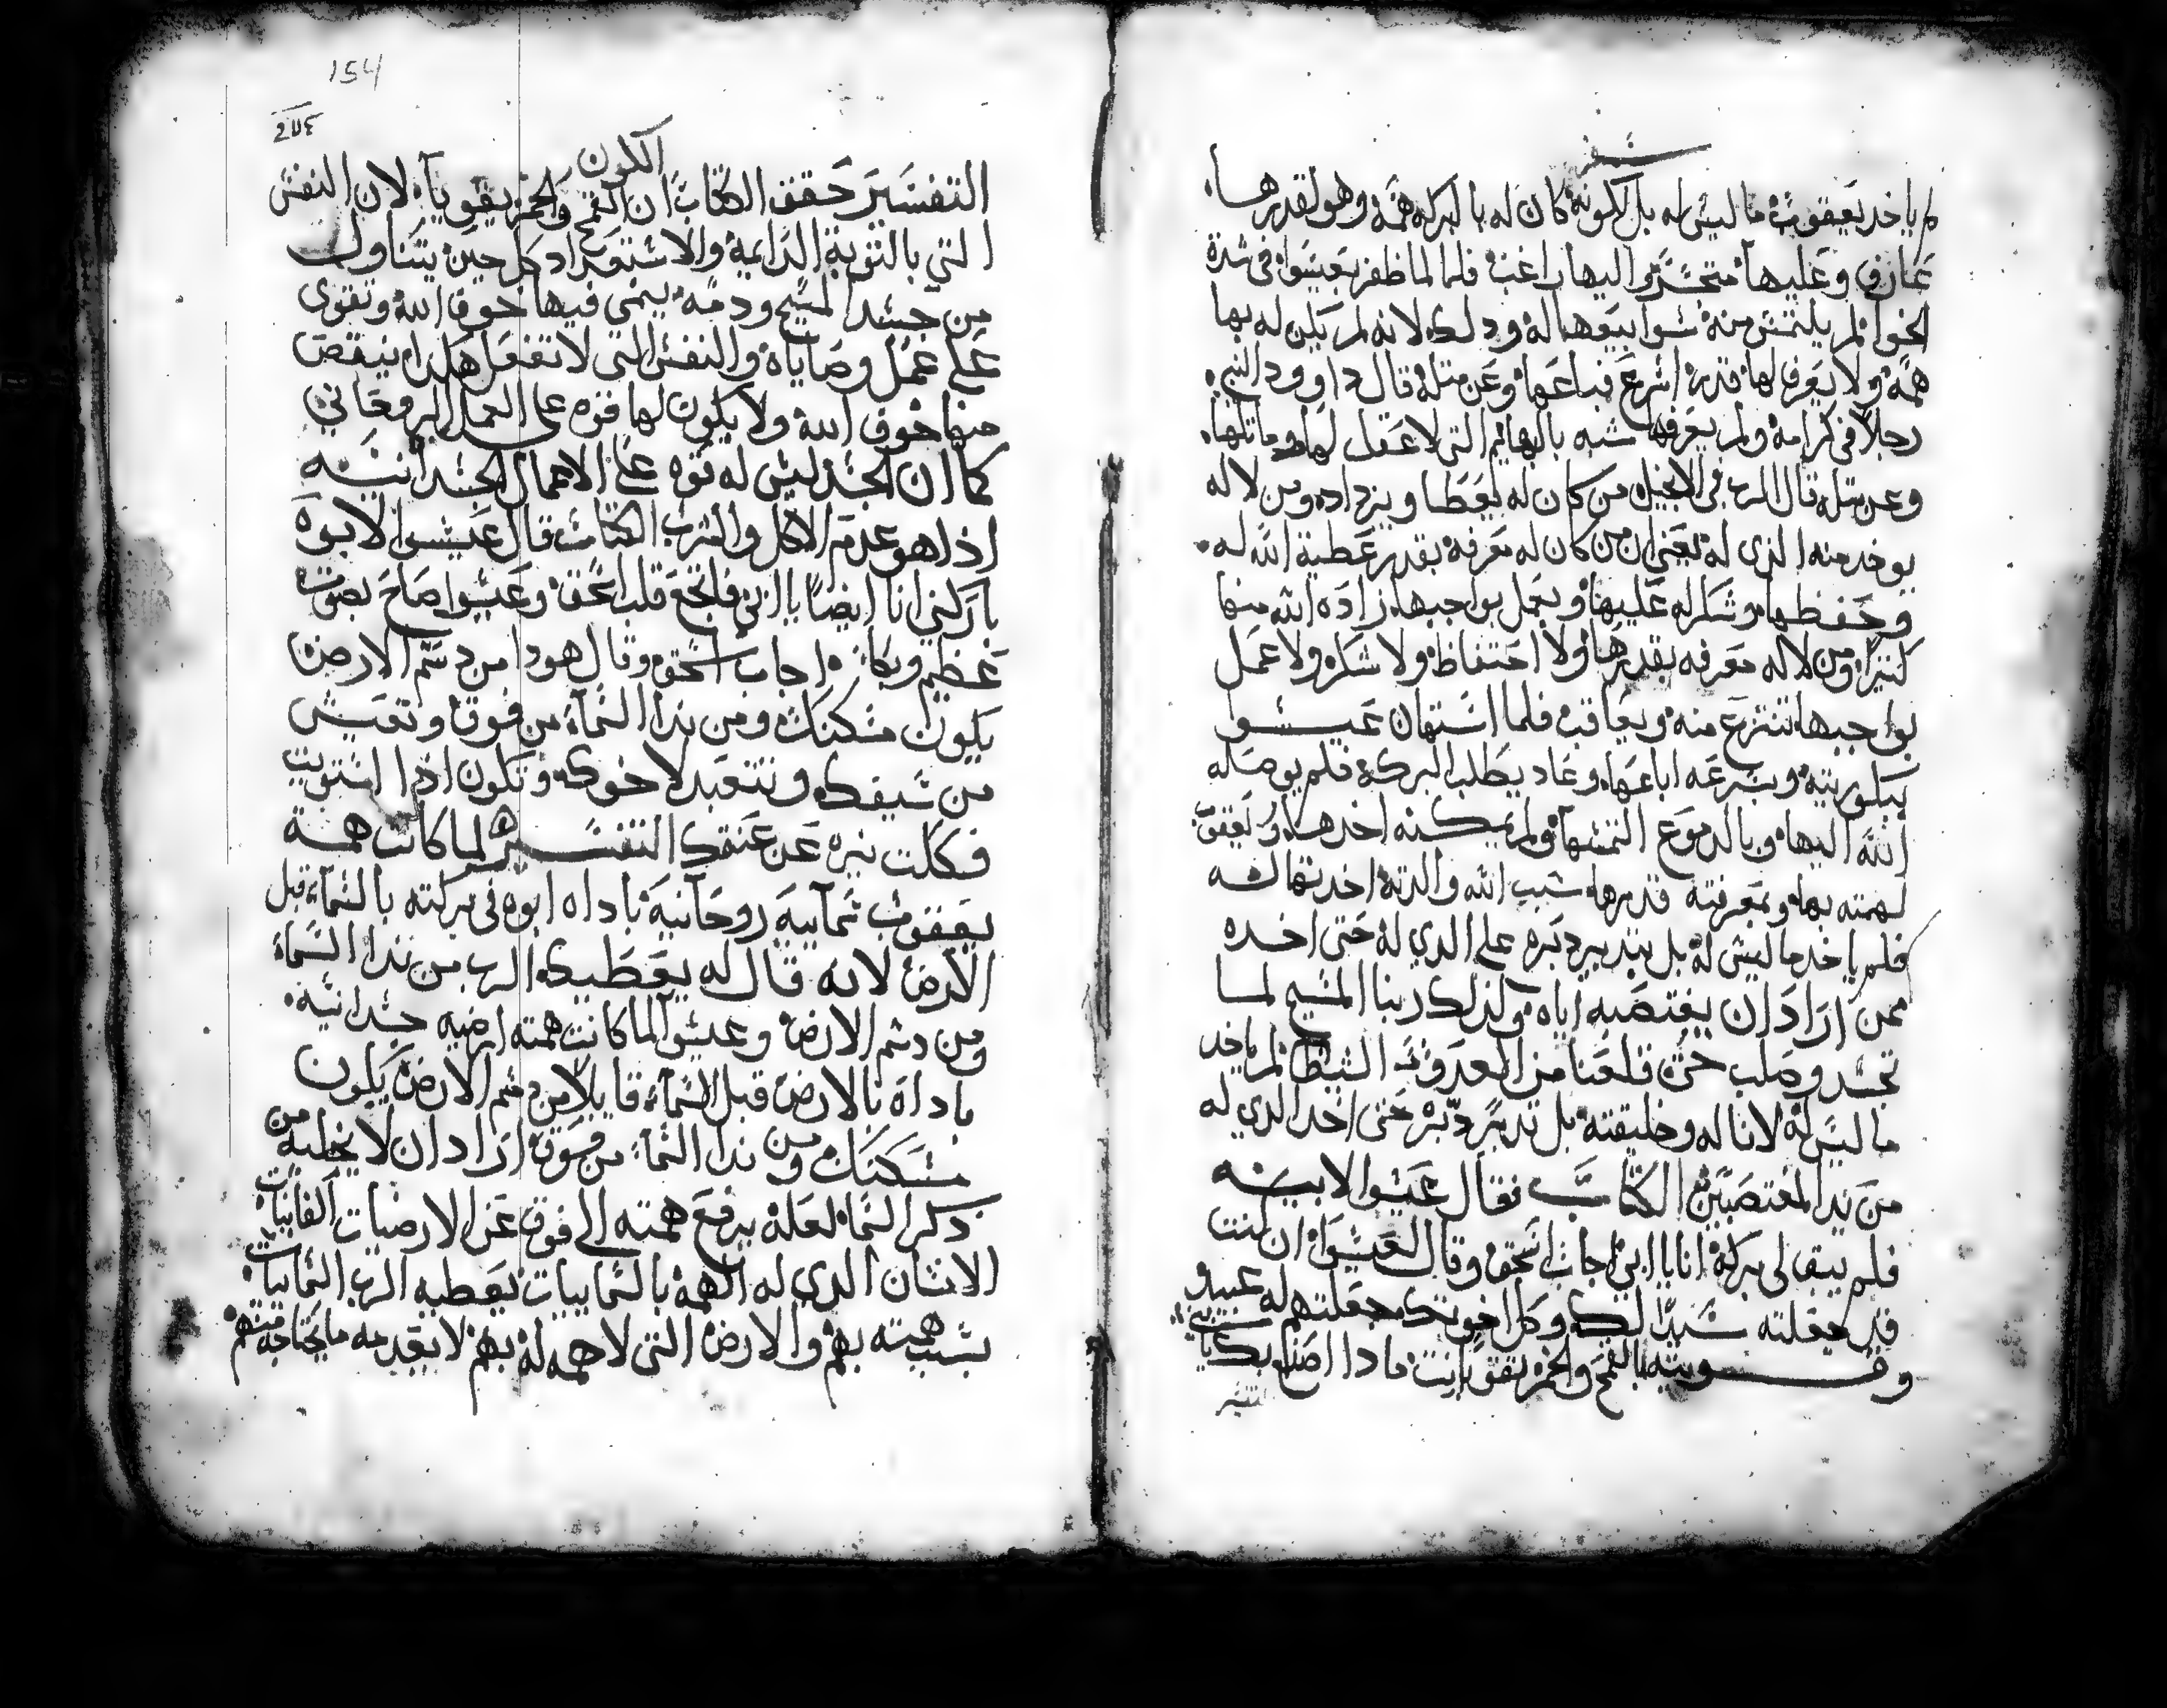 سفر
لم ياخد يعقوب ما ليس له بل لكونه كان له بالبركه همه وهو لقدرها
عارف وعليها متحسر واليها راغب فلما لما ظفر بعيسوا في شدة
الجوا لم يلتمس منه سوا بيعها له ودلك لانه لم يكن له بها
همه ولا يعرف لها قدر اسرع فباعها وعن مثله قال داوود النبي
رجلا في كرامه ولم يعرفها شبه بالبهايم التي لا عقل لها وماثلها
وعن مثله قال الرب في الانجيل من كان له يعطا ويزداد ومن لا له
يوخد منه الذي له يعني ان من كان له معرفه بقدر عطية الله له
وحفظها وشكر له عليها ويعمل بواجبها زاده الله منها
كتيرا ومن لا له معرفه بقدرها ولا احتفاظ ولا شكر ولا عمل
بواجبها تنتزع منه ويعاقب فلما استهان عيسوا
ببكوريته وبسرعه اباعها وعاد يطلب البركه فلم يوصله
الله اليها وبالدموع التمسها ولم يمكنه اخدها ويعقوب
لهمته بها وبمعرفته قدرها سبب الله والدته اخدتها له
فلم ياخد ما ليس له بل بتدبير دبره على الدي له حتى اخده
ممن اراد ان يغتصبه اياه وكذلك ربنا المسيح لما
تجسد وصلب حتى قلعنا من العدو الشيطان لم ياخد
ما ليس له لانا له وخليقته بل تدبير دبره حتى اخد الدي له
من يد المغتصبين الكتاب فقال عيسوا لابيه
فلم يبق لي بركه انا يا ابي اجاب اسحق وقال لعيسوا ان كنت
قد جعلته سيدا لك وكل اخوتك جعلتهم له عبيد
وقويته بالقمح والخمر يقويانه انت مادا اصنع بك يابني
التفسير
154
٢٧٤
الكون
التفسير حقق الكتاب ان القمح والخمر يقويا لان النفس
التي بالتوبة الدايمة والاستعداد كل حين يتناول
من جسد المسيح ودمه ينمي فيها خوف الله وتقوى
على عمل وصاياه والنفس التي لا تفعل هكدا ينقص
منها خوف الله ولا يكون لها قوه على العمل الروحاني
كما ان الجسد ليس له قوه على الاعمال الجسدانيه
اذا هو عدم الاكل والشرب الكتاب قال عيسوا لابوه
باركني انا ايضا يا ابي فاتجع قلب اسحق وعيسوا صاح بصوت
عظيم وبكا اجاب اسحق وقال هودا من دسم الارض
يكون مسكنك ومن ندا السماء من فوق وتعيش
من سيفك وتتعبد لاخوك وتكون اذا استويت
فككت نيره عن عنقك التفسير لما كانت همة
يعقوب سمآييه روحانيه باداه ابوه في بركته بالسماء قبل
الارض لانه قال له يعطيك الرب من ندا السماء
ومن دسم الارض وعيسوا لما كانت همته ارضيه جسدانيه
باداه بالارض قبل السماء قايلا من دسم الارض يكون
مسكنك ومن ندا السماء من فوق اراد ان لا يخليه من
دكر السما لعله يرفع همته الى فوق عن الارضيات الفانيات
الانسان الدي له الهمة بالسماييات يعطيه الرب السماييات
بسبب همته بهم والارض التي لا همه له بهم لا يعدمه ما يحتاجه منهم